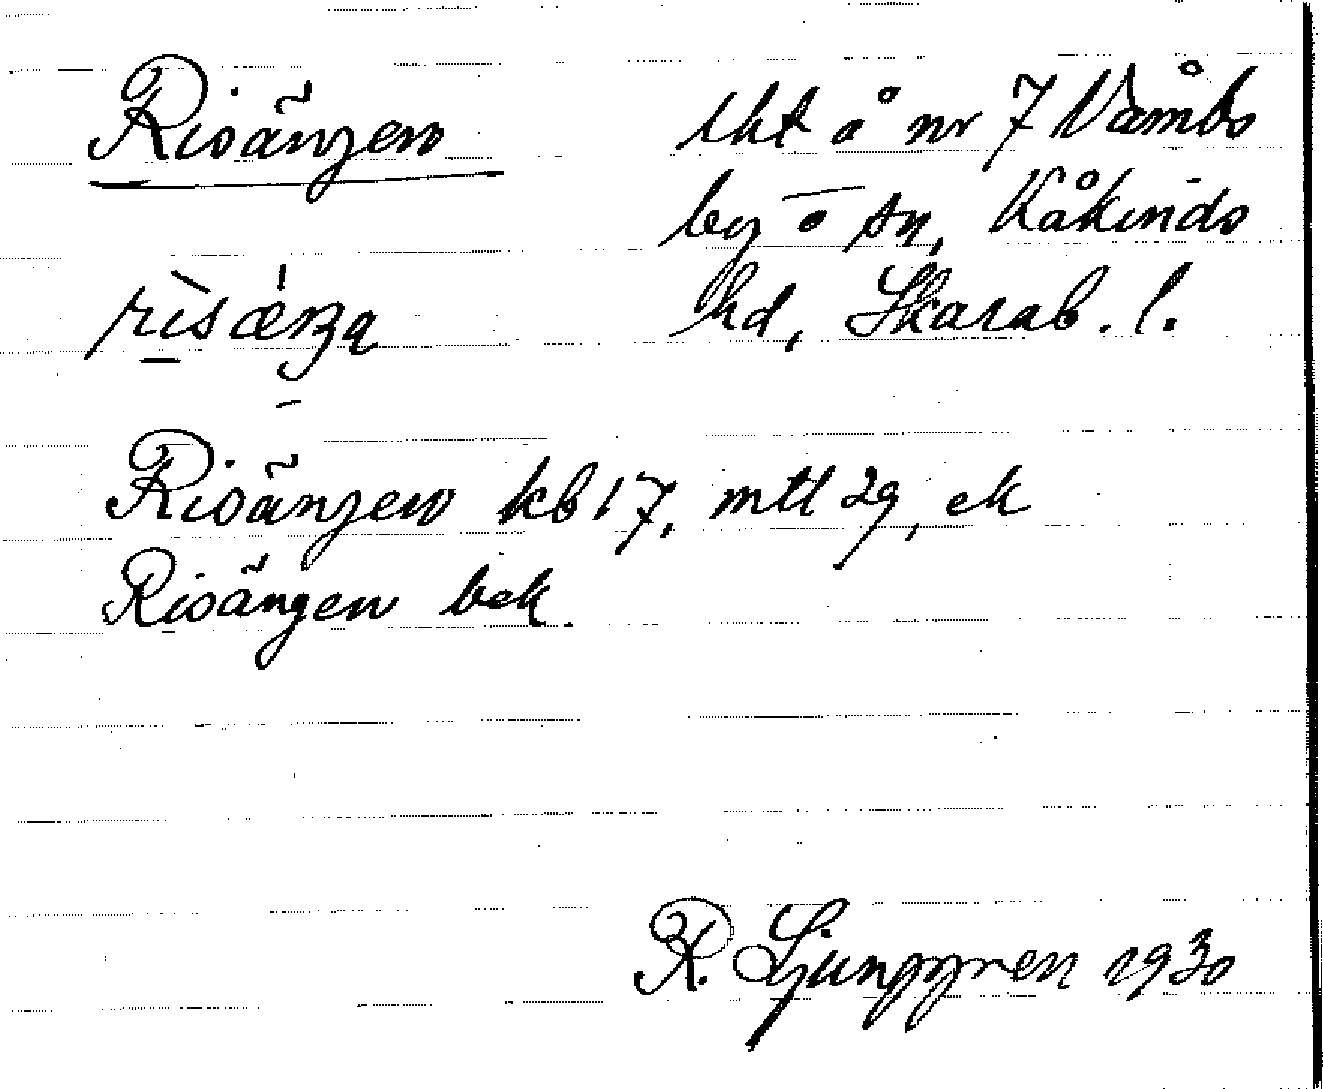 Risängen
lht å nr 7 Våmbs
by o sn, Kåkinds
hd, Skarab. l.
Risängen kb 17, mtl 29, ek
Risängen bek
R. Ljunggren 1930